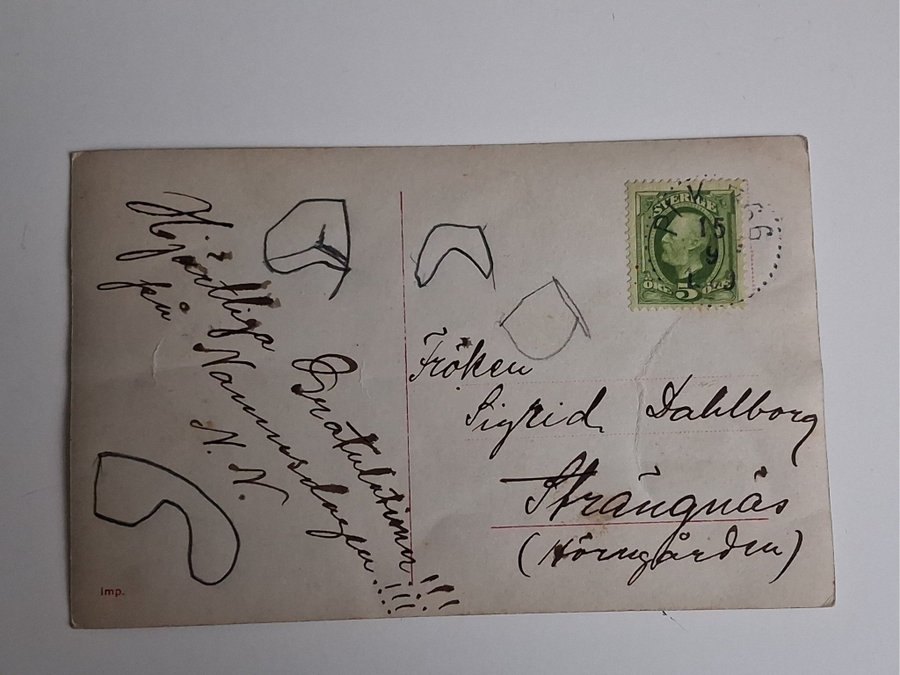 Hjärtliga Gratulationer!!!
på Namnsdagen!!!
N. N.
SVERIGE
15
9
5
ÖRE
Fröken
Sigrid Dahlborg
Strängnäs
(Hörngården)
Imp.